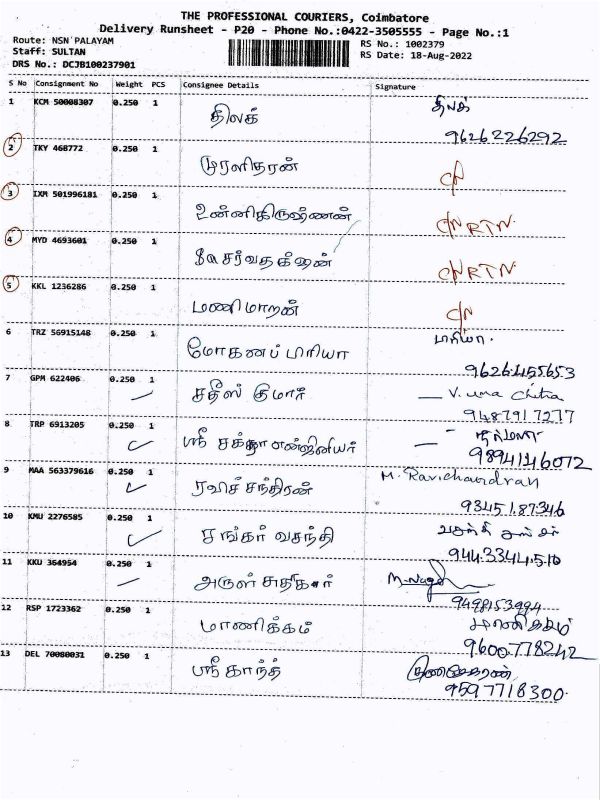 THE PROFESSIONAL COURIERS, Coimbatore
Delivery Runsheet - P20 - Phone No.:0422-3505555 - Page No.:1
Route: NSN PALAYAM
Staff: SULTAN
DRS No.: DCJB100237901
RS No.: 1002379
RS Date: 18-Aug-2022
S No Consignment No Weight PCS Consignee Details Signature
1 KCM 50008307 0.250 1 திலக் திலக்
9626226292
2 TKY 468772 0.250 1 முரளிதரன் C/N
3 IXM 501996181 0.250 1 உன்னிகிருஷ்ணன் C/N RTN.
4 MYD 4693601 0.250 1 சர்வதக்ஷன் C/N RTN.
5 KKL 1236286 0.250 1 மணிமாறன் C/N
6 TRZ 56915148 0.250 1 மோகனப் பிரியா பிரியா.
9626455653
7 GPM 622406 0.250 1 சதீஸ் குமார்
9487917277
8 TRP 6913205 0.250 1 ஸ்ரீ சக்தி என்ஜினியர் நிர்மலா
9894146072
9 MAA 563379616 0.250 1 ரவிச் சந்திரன் M. Ravichandran
9345187346
10 KMU 2276585 0.250 1 சங்கர் வசந்தி
9443344510
11 KKU 364954 0.250 1 அருள் சுதிகர்
9498153994
12 RSP 1723362 0.250 1 மாணிக்கம் மாணிக்கம்
9600778242
13 DEL 70080031 0.250 1 ஸ்ரீ காந்த் குணசேகரன்
9597718300.